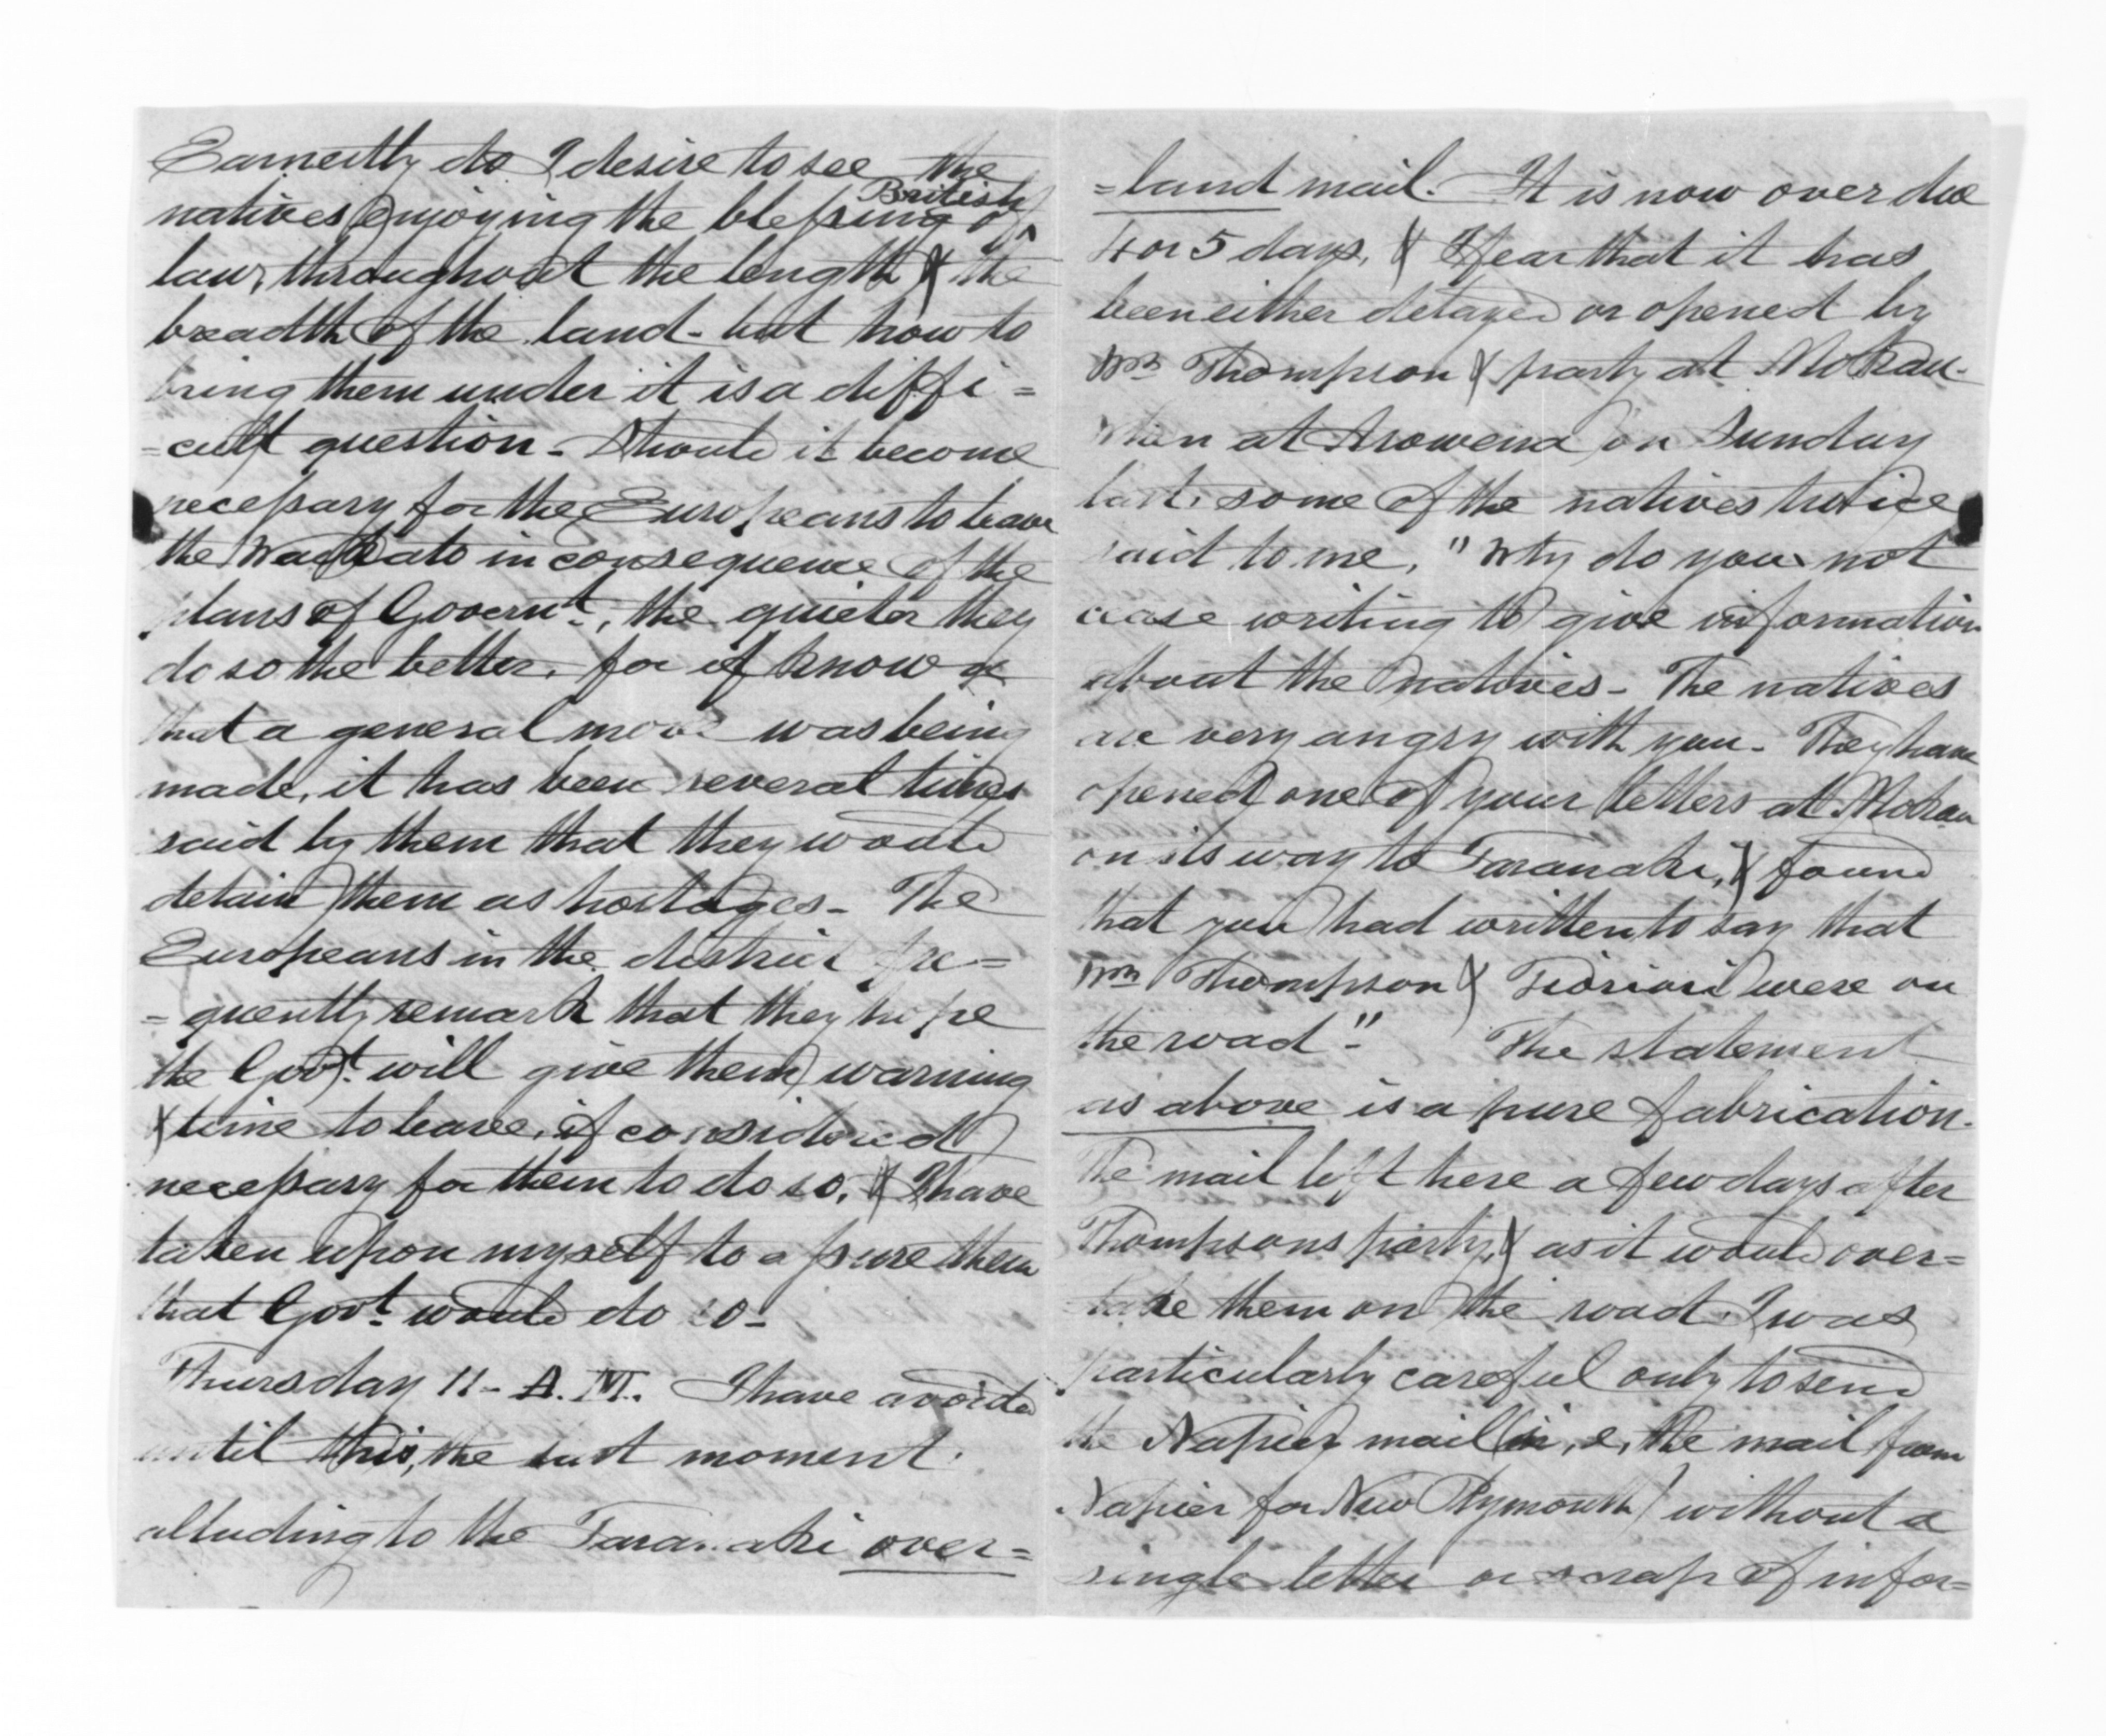 Earnestly do I desire to see the
natives enjoying the blessing of British
law, throughout the length & the
breadth of the land - but how to
bring them under it is a diffi=
=cult question - Should it become
necessary for the Europeans to leave
the Waikato in consequence of the
plans of Governt., the quieter they
do so the better, for if known
that a general move was being
made, it has been several times
said by them that they would
detain them as hostages - The
Europeans in the district fre=
=quently remark that they hope
the Govt. will give them warning
& time to leave, if considered
necessary for them to do so, & I have
taken upon myself to assure them
that Govt. would do so -
Thursday 11 - A.M. I have avoided
until this, the last moment
alluding to the Taranaki over=
=land mail. It is now over due
4 or 5 days, & I fear that it has
been either delayed or opened by
Wm Thompson & party at Mokau -
When at Arowena on Sunday
last, some of the natives twice
said to me, "Why do you not
cease writing to give information
about the natives - The natives
are very angry with you - They have
opened one of your letters at Mokau
on its way to Taranaki, & found
that you had written to say that
Wm Thompson & Tioriori were on
the road" - The statement
as above is a pure fabrication.
The mail left here a few days after
Thompsons party, & as it would over=
=take them on the road I was
particularly careful only to send
the Napier mail (i, e, the mail from
Napier for New Plymouth) without a
single letter or scrap of infor=